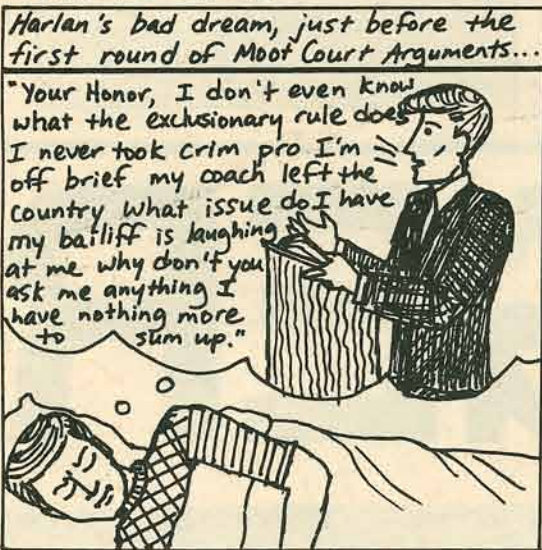 Harlan's bad dream, just before the
first round of Moot Court Arguments...
"Your Honor, I don't even know
what the exclusionary rule does
I never took crim pro I'm
off brief my coach left the
country what issue do I have
my bailiff is laughing
at me why don't you
ask me anything I
have nothing more
to sum up."